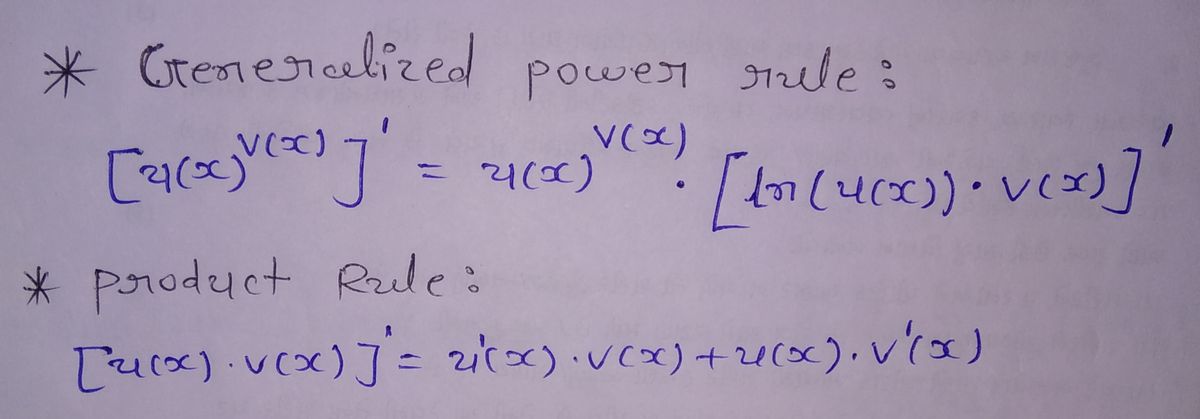 * Generalized power rule:
[u(x)^v(x)]' = u(x)^v(x) · [ln(u(x)) · v(x)]'
* product Rule:
[u(x) · v(x)]' = u'(x) · v(x) + u(x) · v'(x)